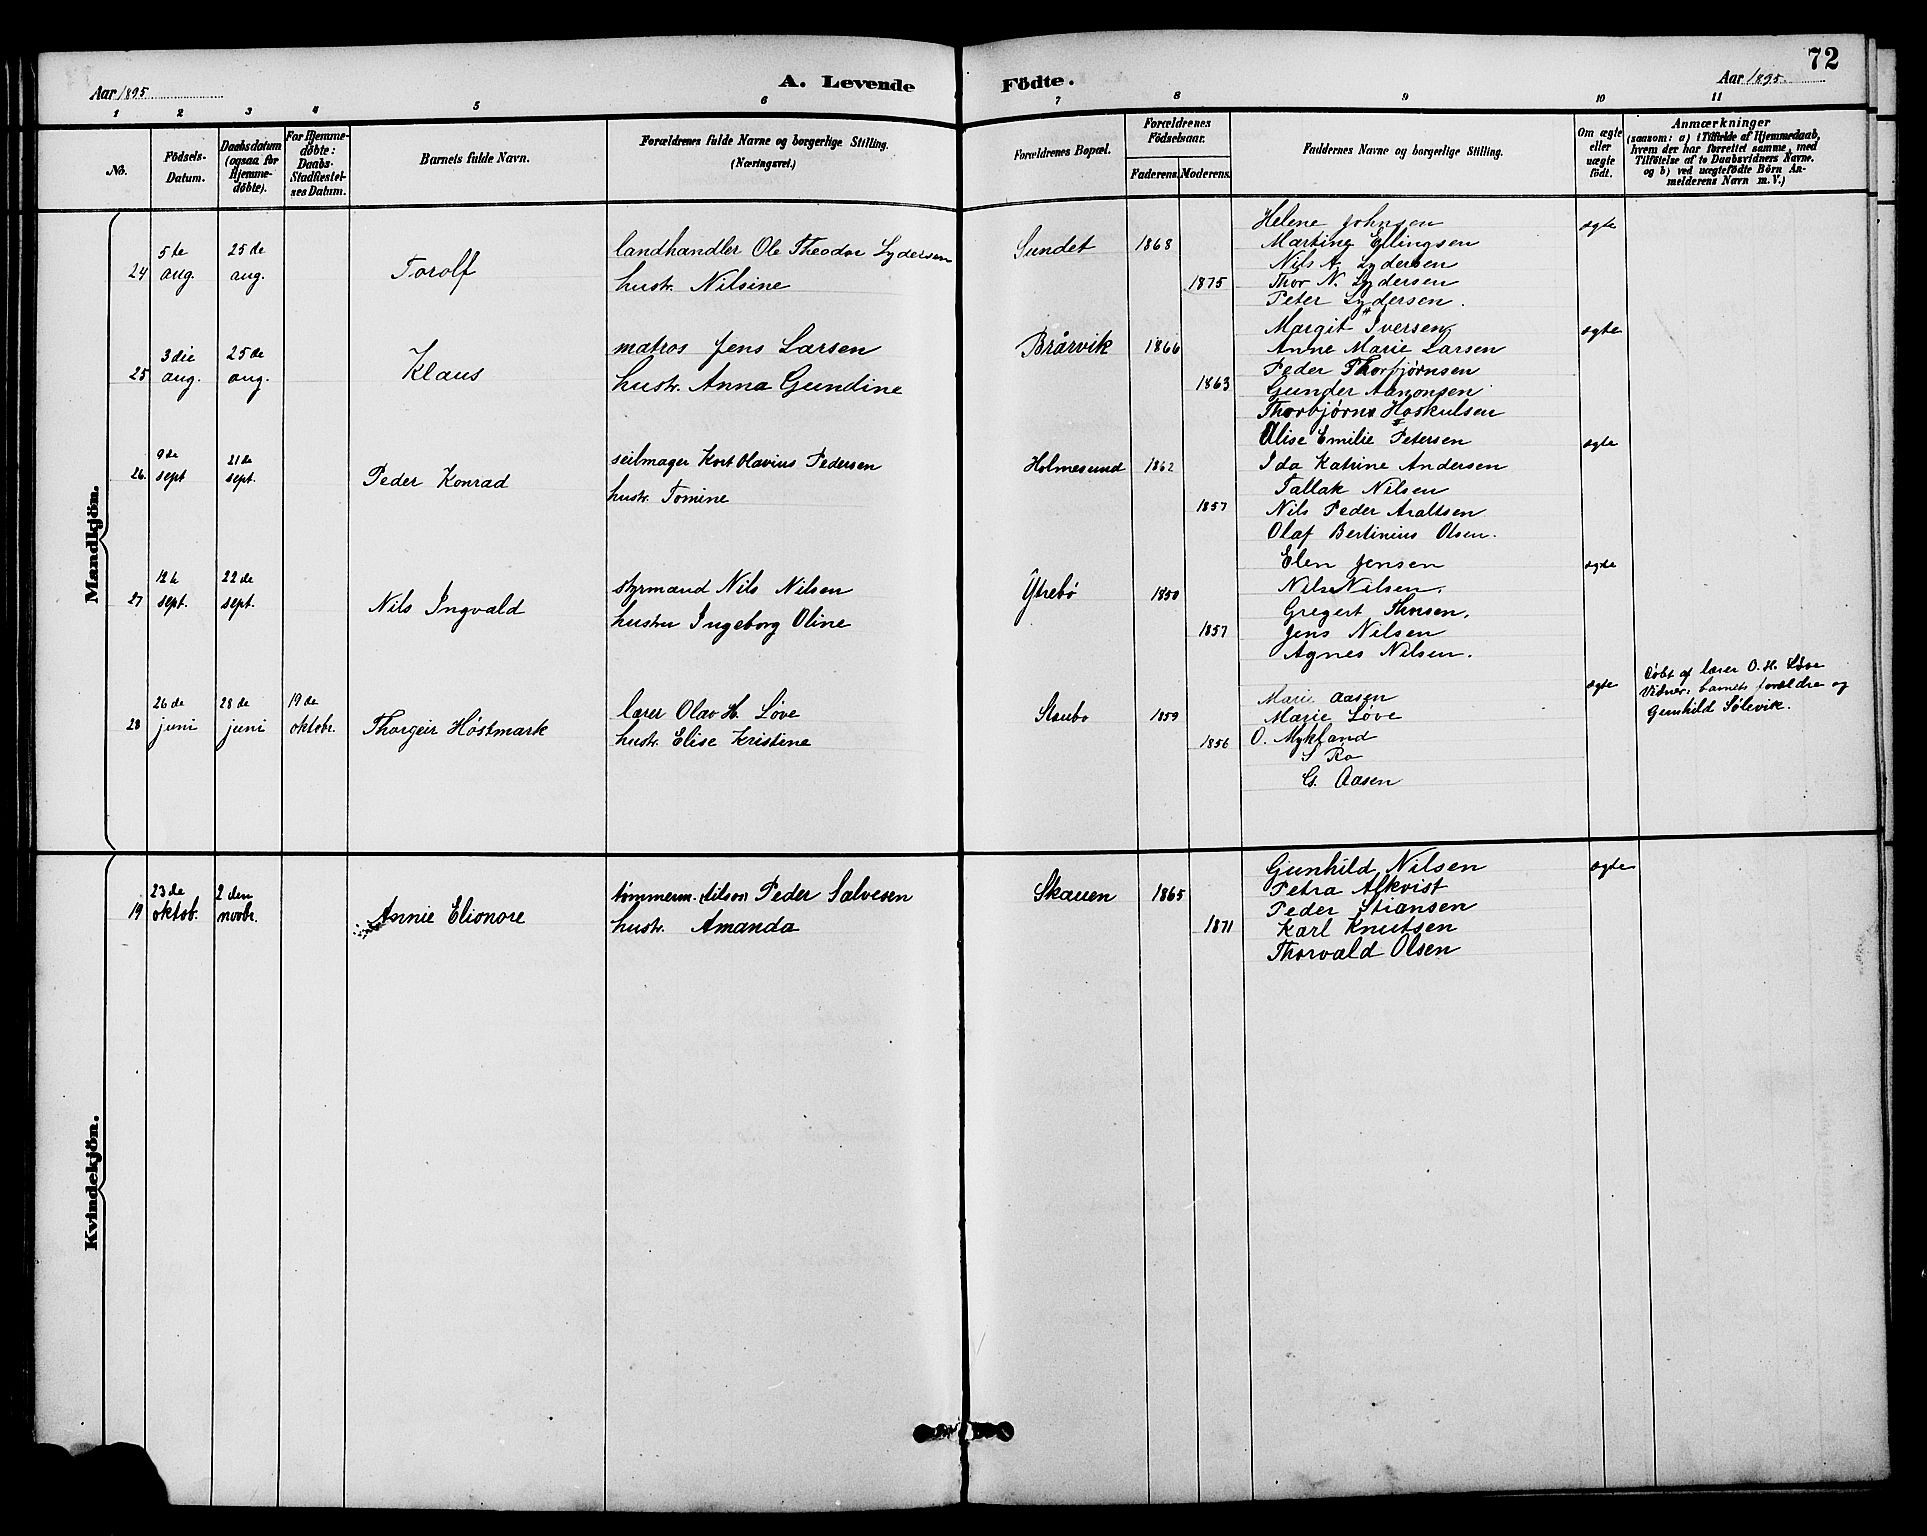 72
Aar 1895
A. Levende Födte.
Aar 1895.
1 2 3 4 5 6 7 8 9 10 11
No.
Födsels-
Datum.
Daabsdatum
(ogsaa for
Hjemme-
döbte).
For Hjemme-
döbte:
Daabs-
Stadfæstel-
ses Datum.
Barnets fulde Navn.
Forældrenes fulde Navne og borgerlige Stilling.
(Næringsvei.)
Forældrenes Bopæl.
Forældrenes
Födselsaar.
Faderens. Moderens.
Faddernes Navne og borgerlige Stilling.
Om ægte
eller
uægte
födt.
Anmærkninger
(saasom: a) i Tilfælde af Hjemmedaab,
hvem der har forrettet samme, med
Tilföielse af to Daabsvidners Navne.
og b) ved uægtefödte Börn An-
melderens Navn m. V.)
Mandkjön.
24
5te
aug.
25de
aug.
Torolf
landhandler Ole Theodor Lydersen
hustr. Nilsine
Sundet
1868
1875
Helene Johnsen
Martine Ellingsen
Nils A. Lydersen
Thor N. Lydersen
Peter Lydersen.
ægte
25
3die
aug.
25de
aug.
Klaus
matros Jens Larsen
hustr. Anna Gundine
Brårvik
1866
1863
Margit Iversen
Anne Marie Larsen
Peder Thorbjørnsen
Gunder Aanonsen
Thorbjørn Hoskulsen
ægte
26.
9de
sept
21de
sept.
Peder Konrad
seilmager Kort Olavius Pedersen
hustr. Tomine
Holmesund
1862
1857
Alise Emilie Petersen
Ida Katrine Andersen
Tallak Nilsen
Nils Peder Araltsen
Olaf Bertinius Olsen.
ægte
27
12te
sept.
22de
sept.
Nils Ingvald
styrmand Nils Nilsen
hustru Ingeborg Oline
Ytrebø
1850
1857
Elen Jensen
Nils Nilsen.
Gregert Thorsen.
Jens Nilsen
Agnes Nilsen.
ægte
28
26de
juni
28de
juni
19de
oktobr.
Thorgeir Høstmark
lærer Olav H. Løve
hustr. Elise Kristine
Staubo
1859
1856
Marie Aasen
Marie Løve
O. Mykland
S Ro
G. Aasen
ægte
Døbt af lærer O. H. Løve
Vidner: barnets forældre og
Gunhild Sølevik.
Kvindekjön.
19
23de
oktob.
2den
novbr.
Annie Elionore
tømmerm. Peder Salvesen
hustr. Amanda
Skauen
1865
1871
Gunhild Nilsen
Petra Alkvist
Peder Stiansen
Karl Knutsen
Thorvald Olsen
ægte